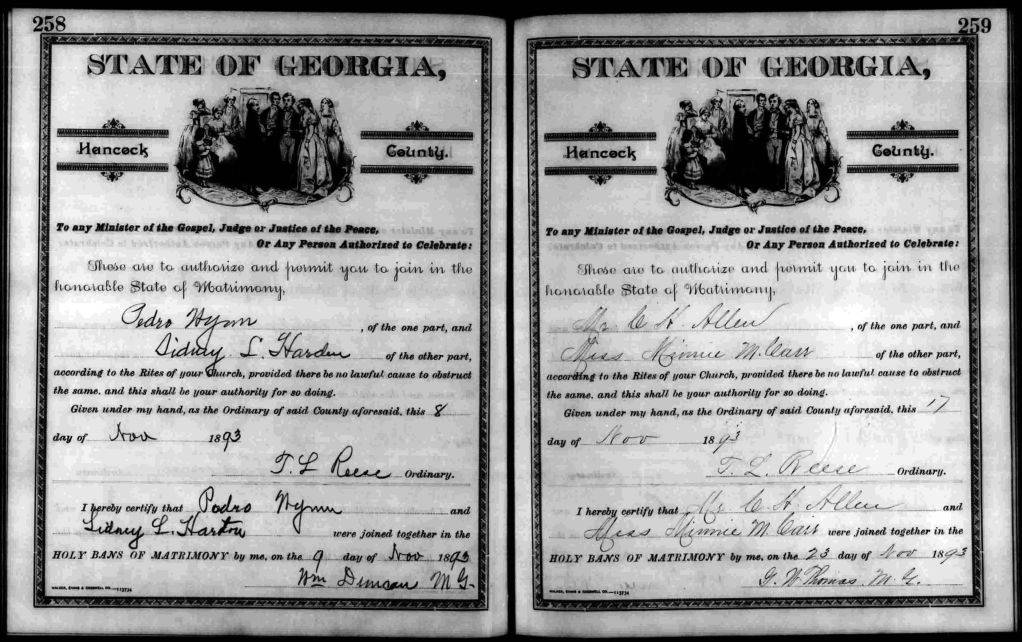 258
STATE OF GEORGIA,
Hancock County.
To any Minister of the Gospel, Judge or Justice of the Peace,
Or Any Person Authorized to Celebrate:
These are to authorize and permit you to join in the
honorable State of Matrimony,
Pedro Wynn, of the one part, and
Sidney L. Harden of the other part,
according to the Rites of your Church, provided there be no lawful cause to obstruct
the same, and this shall be your authority for so doing.
Given under my hand, as the Ordinary of said County aforesaid, this 8
day of Nov 1893
T. L Reese Ordinary.
I hereby certify that Pedro Wynn and
Sidney L. Harden were joined together in the
HOLY BANS OF MATRIMONY by me, on the 9 day of Nov 1893
Wm Duncan M G.
259
STATE OF GEORGIA,
Hancock County.
To any Minister of the Gospel, Judge or Justice of the Peace,
Or Any Person Authorized to Celebrate:
These are to authorize and permit you to join in the
honorable State of Matrimony,
Mr. C H. Allen, of the one part, and
Miss Minnie M. Carr of the other part,
according to the Rites of your Church, provided there be no lawful cause to obstruct
the same, and this shall be your authority for so doing.
Given under my hand, as the Ordinary of said County aforesaid, this 17
day of Nov 1893
T. L. Reese Ordinary.
I hereby certify that Mr C H. Allen and
Miss Minnie M. Carr were joined together in the
HOLY BANS OF MATRIMONY by me, on the 23 day of Nov 1893
G. W Thomas, M. G.